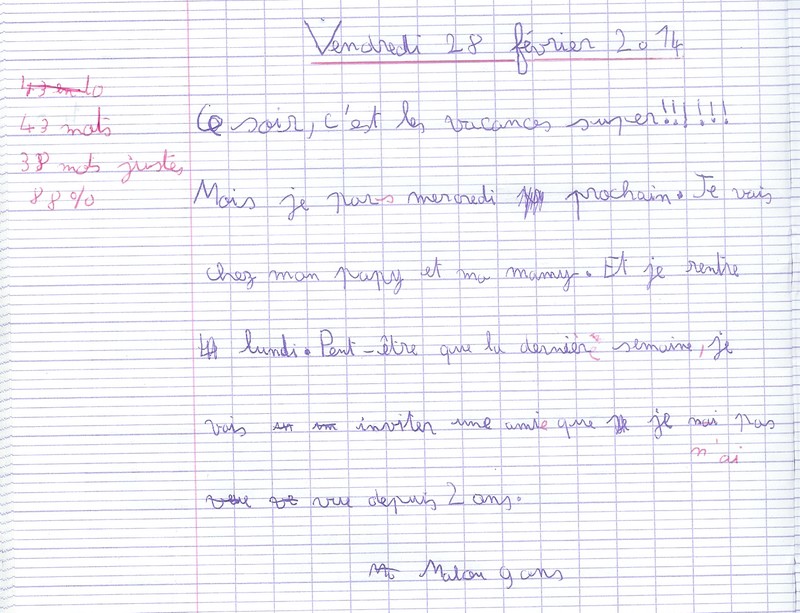 Vendredi 28 février 2014
43 mots
38 mots justes
88%
Ce soir, c'est les vacances super!!!!!!
Mais je pars mercredi prochain. Je vais
chez mon papy et ma mamy. Et je rentre
lundi. Peut-être que la dernière semaine, je
vais inviter une amie que je nai pas
n'ai
vue depuis 2 ans.
Malou 9 ans